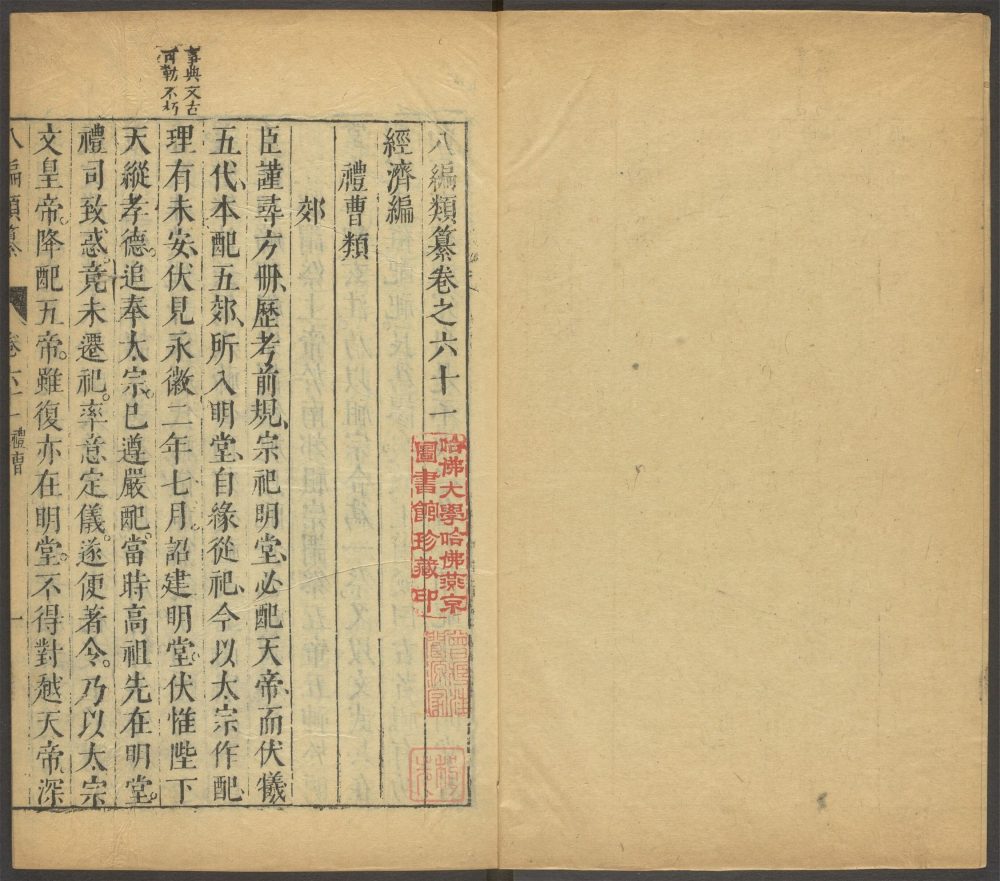 八編類纂卷之六十一
經濟編
禮曹類
郊
臣謹尋方冊、歷考前規、宗祀明堂、必配天帝、而伏犧
五代、本配五郊、所入明堂、自緣從祀、今以太宗作配、
理有未安、伏見永徽二年七月、詔建明堂、伏惟陛下
天縱孝德。追奉太宗。已遵嚴配。當時高祖先在明堂。
禮司致惑。竟未遷祀。率意定儀。遂便著令。乃以太宗
文皇帝。降配五帝。雖復亦在明堂。不得對越天帝。深
八編類纂 卷六十一 禮曹 一
事典文古
可勒不朽
哈佛大學哈佛燕京
圖書館珍藏印